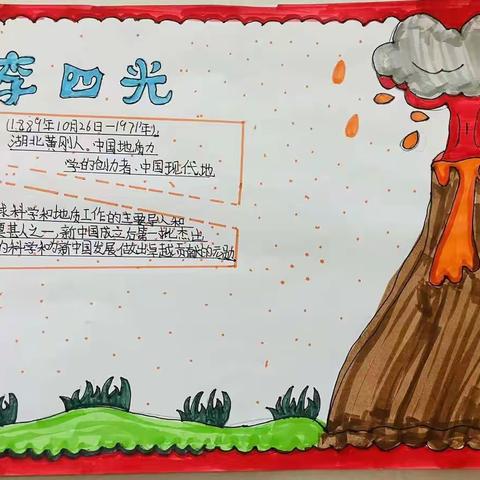 李四光
(1889年10月26日-1971年),
湖北黄刚人、中国地质力
学的创力者、中国现代地
球科学和地质工作的主要早人和
要甚人之一,新中国成立后第一批杰出
的科学和为新中国发展做出卓越贡献的元勋